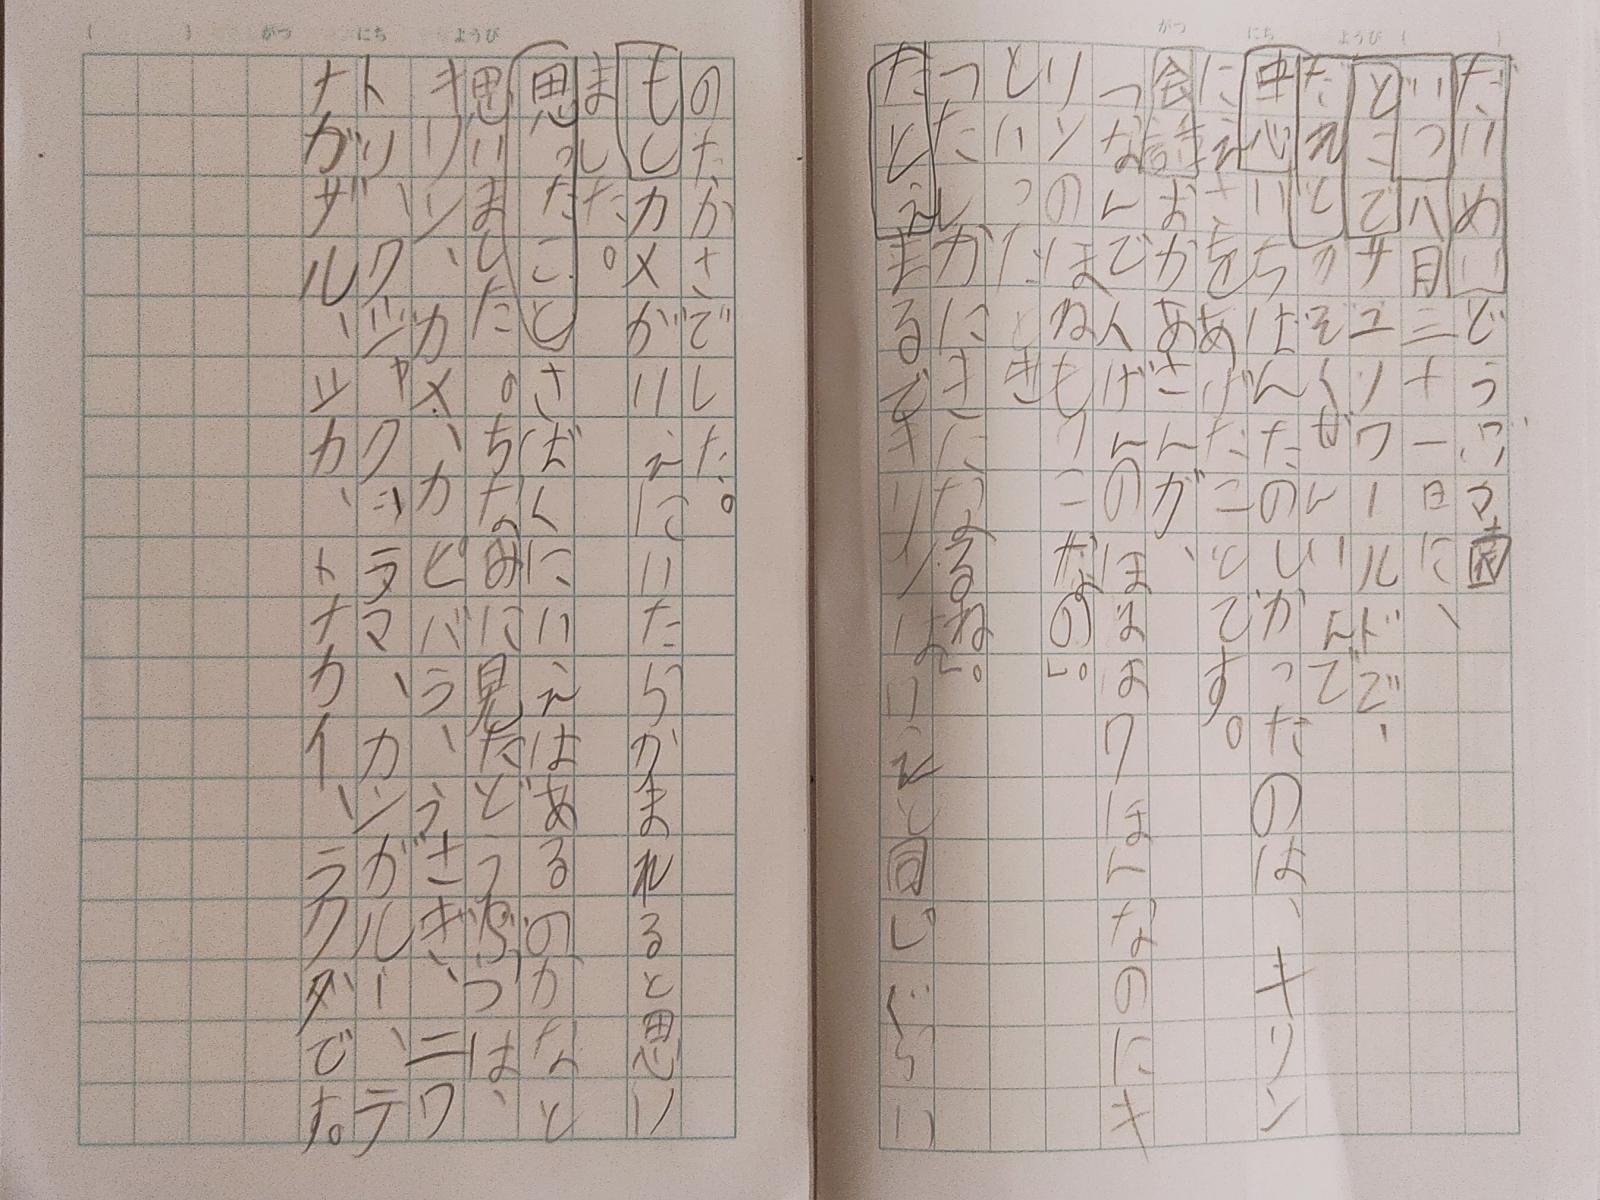 がつ にち ようび
だいめい どうぶつ園
いつ 八月三十一日に、
どこで サユリワールドで、
だれと かぞくぜんいんで
中心 いちばんたのしかったのは、キリン
にえさをあげたことです。
会話 おかあさんが、
「なんでんげんのほねは7ほんなのにキ
リンのほねも7こなの」。
といったとき
「たしかにきになるね」。
たとえ まるでキリンはいえと同じぐらい
がつ にち ようび
のたかさでした。
もし カメがいえにいたらかまれると思い
ました。
思ったこと さばくにいえはあるのかなと
思いました。ちなみに見たどうぶつは、
キリン、カメ、カピバラ、うさぎ、ニワ
トリ、クジャク、ラマ、カンガルー、テ
ナガザル、シカ、トナカイ、ラクダです。